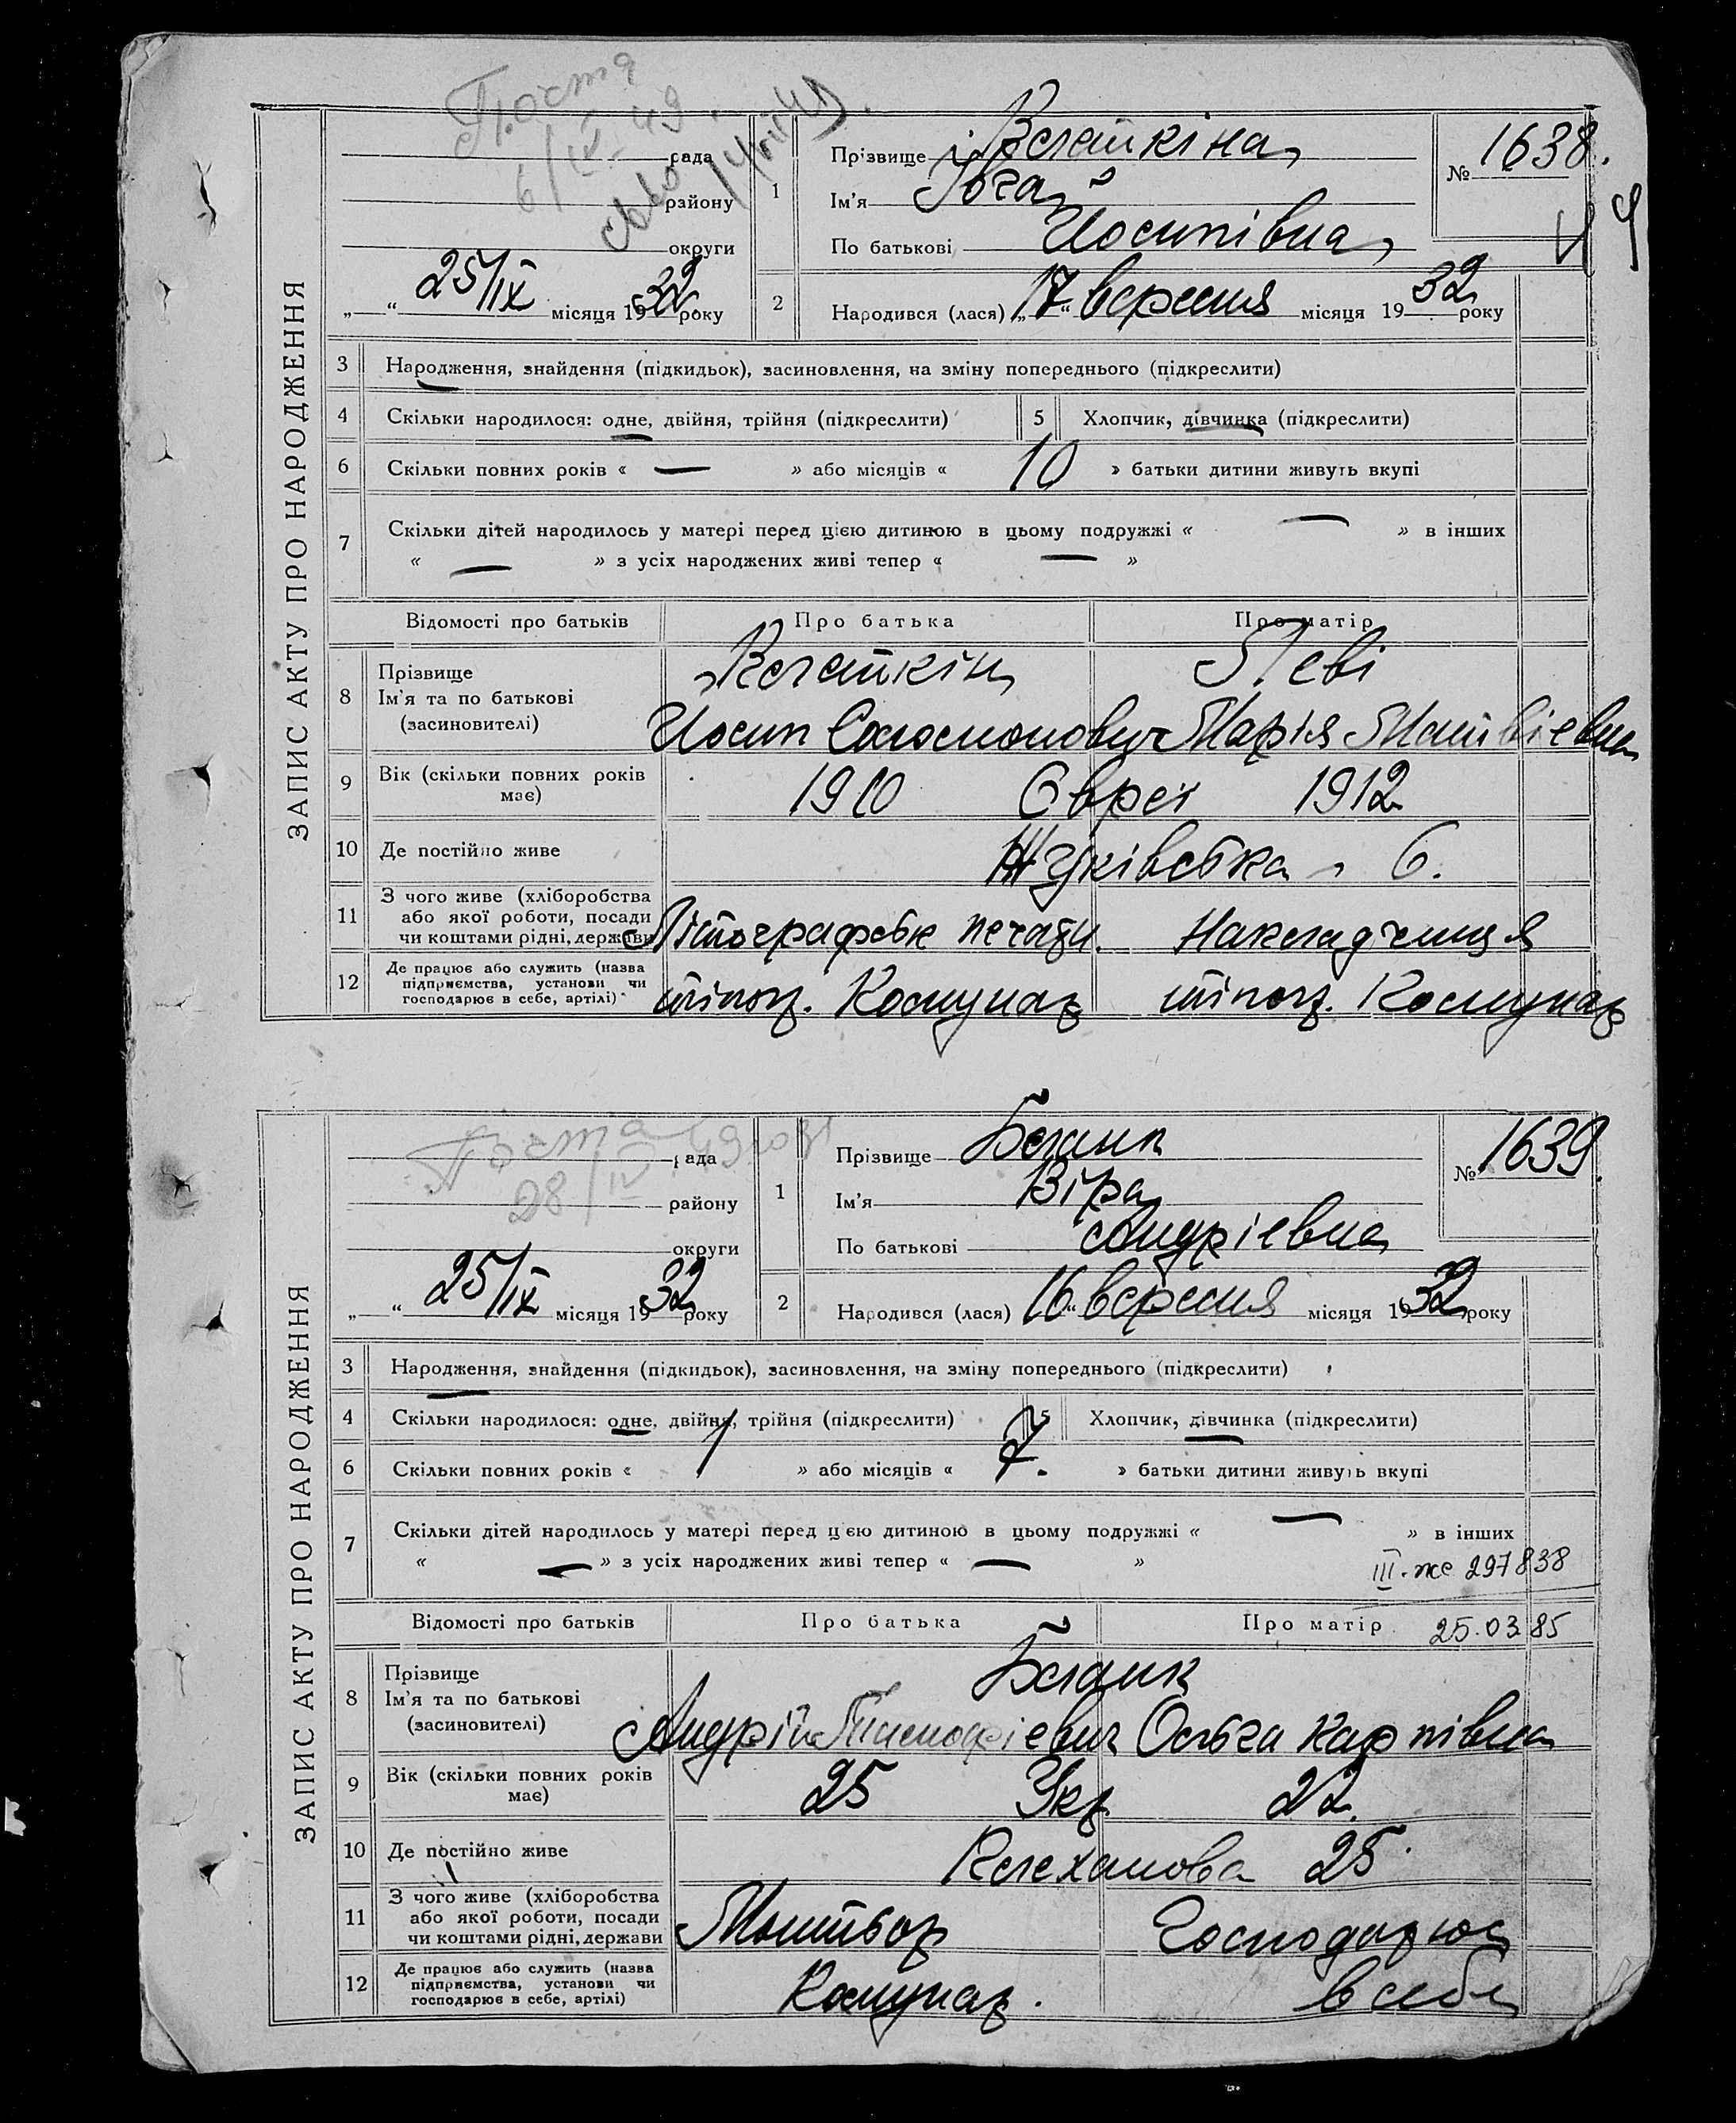 ЗАПИС АКТУ ПРО НАРОДЖЕННЯ
Почта
6/IX 49
рада
району
округи
„ “ 25/IX місяця 1932 року
1
Прізвище
Ім'я
По батькові Йосипівна
№ 1638.
2
Народився (лася) „17“ вересня місяця 1932 року
3 Народження, знайдення (підкидьок), засиновлення, на зміну попереднього (підкреслити)
4 Скільки народилося: одне, двійня, трійня (підкреслити) 5 Хлопчик, дівчинка (підкреслити)
6 Скільки повних років « — » або місяців « 10 » батьки дитини живуть вкупі
7 Скільки дітей народилось у матері перед цією дитиною в цьому подружжі « — » в інших
« — » з усіх народжених живі тепер « — »
Відомості про батьків Про батька Про матір
8 Прізвище Леві
Ім'я та по батькові Йосип Соломонович Марія Матвієвна
(засиновителі)
9 Вік (скільки повних років має) 1910 Єврей 1912
10 Де постійно живе 6.
11 З чого живе (хліборобства або якої роботи, посади чи коштами рідні, держави Літографськ печатн. Накладчиця
12 Де працює або служить (назва підприємства, установи чи господарює в себе, артілі) тіпогр. Комунар тіпогр. Комунар
ЗАПИС АКТУ ПРО НАРОДЖЕННЯ
Почта
28/IV 49
рада
району
округи
„ “ 25/IX місяця 1932 року
1
Прізвище Білик
Ім'я Віра
По батькові Андрієвна
№ 1639.
2
Народився (лася) 16“ вересня місяця 1932 року
3 Народження, знайдення (підкидьок), засиновлення, на зміну попереднього (підкреслити)
4 Скільки народилося: одне, двійня, трійня (підкреслити) 5 Хлопчик, дівчинка (підкреслити)
6 Скільки повних років « 1 » або місяців « 7. » батьки дитини живуть вкупі
7 Скільки дітей народилось у матері перед цією дитиною в цьому подружжі « — » в інших
« — » з усіх народжених живі тепер « — »
III-же 297838
Відомості про батьків Про батька Про матір 25.03.85
8 Прізвище Білик
Ім'я та по батькові Андрій Тимофієвич Ольга Карпівна
(засиновителі)
9 Вік (скільки повних років має) 25 Укр 22.
10 Де постійно живе Плеханова 25
11 З чого живе (хліборобства або якої роботи, посади чи коштами рідні, держави Монтьор Господарює
12 Де працює або служить (назва підприємства, установи чи господарює в себе, артілі) Комунар. в себе